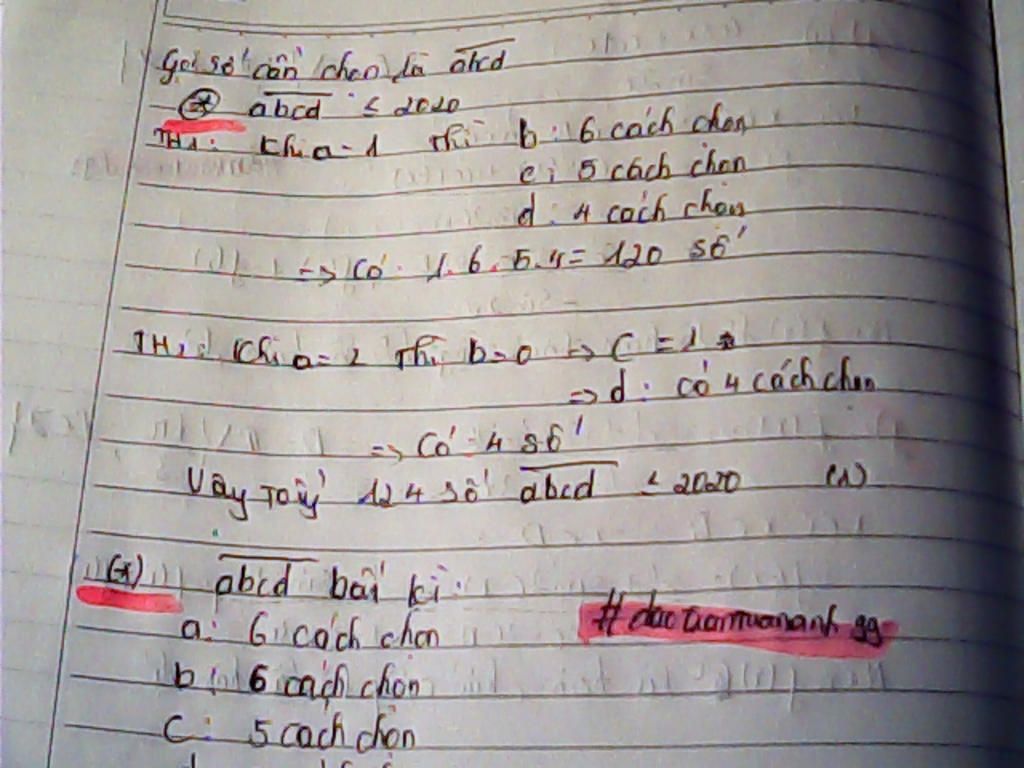 Gọi số cần chọn là abcd
* abcd ≤ 2020
TH1: Khi a=1 thì b: 6 cách chọn
c: 5 cách chọn
d: 4 cách chọn
=> Có: 1.6.5.4= 120 số
TH2: Khi a=2 Thì b=0 => C=1
=> d: có 4 cách chọn
=> Có 4 số
Vậy 124 số abcd ≤ 2020 (1)
(*) abcd bất kì:
a: 6 cách chọn
# gg
b: 6 cách chọn
C: 5 cách chọn